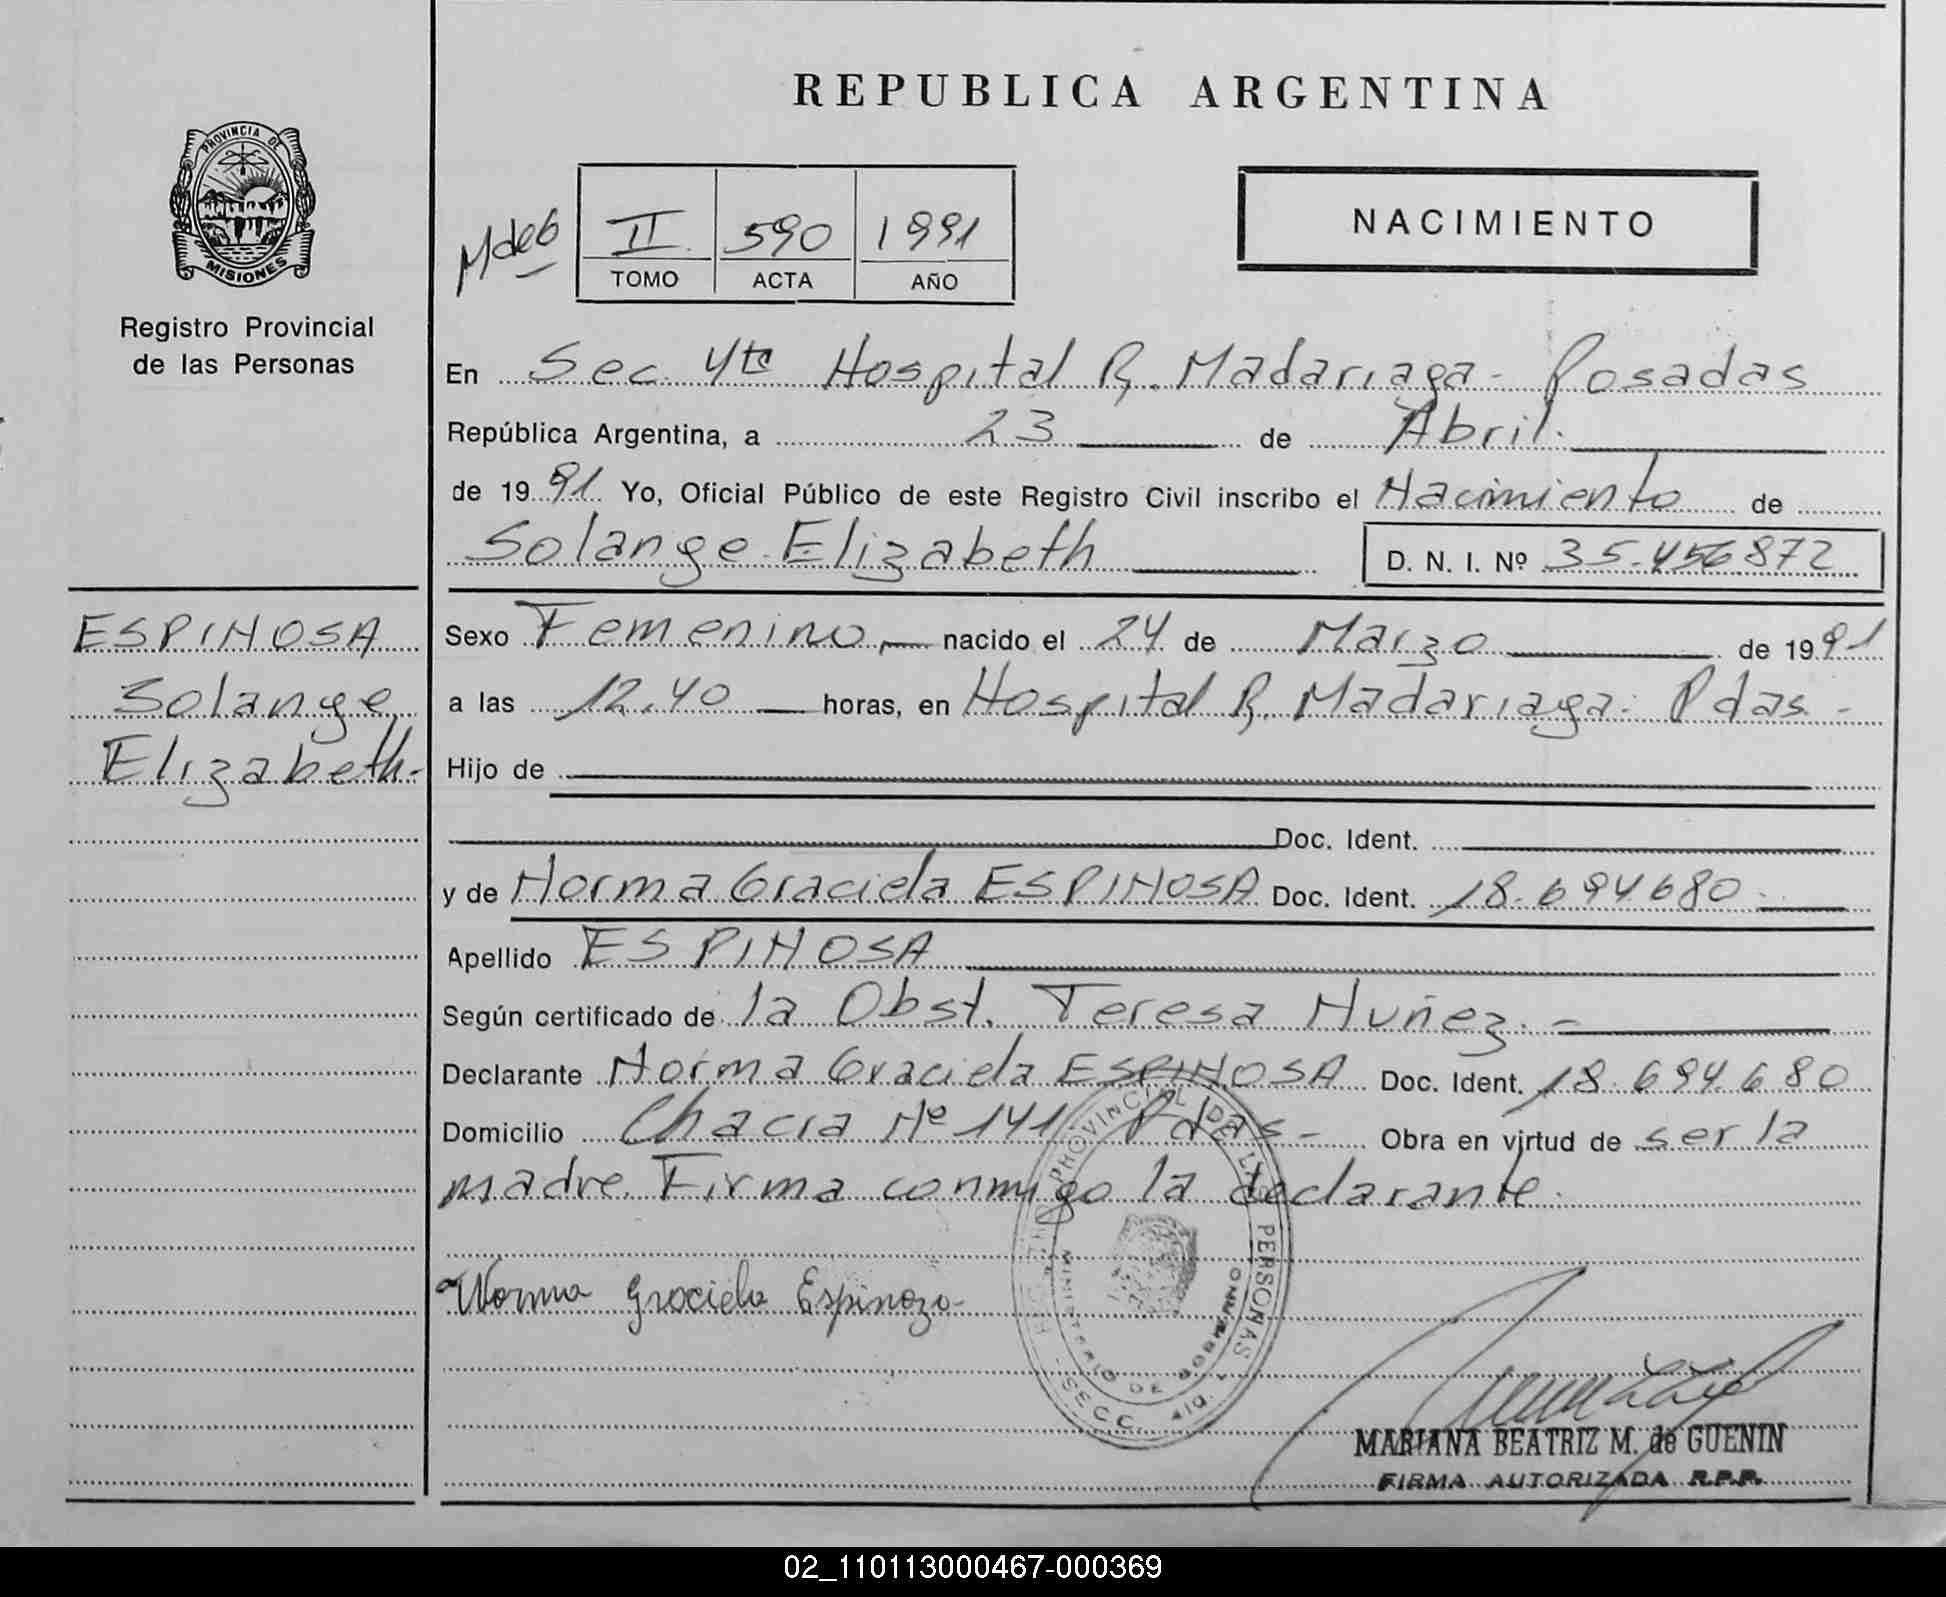 REPUBLICA ARGENTINA
PROVINCIA DE
MISIONES
Registro Provincial
de las Personas
II 590 1991
TOMO ACTA AÑO
NACIMIENTO
En Sec 4ta Hospital R. Madariaga - Posadas
República Argentina, a 23 de Abril.
de 1991 Yo, Oficial Público de este Registro Civil inscribo el Nacimiento de
Solange Elizabeth D. N. I. Nº 35.456872
ESPINOSA
Solange
Elizabeth-
Sexo Femenino nacido el 24 de Marzo de 1991
a las 12.40 horas, en Hospital R. Madariaga. Pdas. -
Hijo de
Doc. Ident.
y de Norma Graciela ESPINOSA Doc. Ident. 18.694680.
Apellido ESPINOSA
Según certificado de la Obst. Teresa Nuñez. -
Declarante Norma Graciela ESPINOSA Doc. Ident. 18.694.680
Domicilio Chacra Nº 141 Pdas - Obra en virtud de ser la
madre. Firma conmigo la declarante.
Norma Graciela Espinoza
PROVINCIAL DE LAS PERSONAS
MINISTERIO DE GOBIERNO
SECC.
MARIANA BEATRIZ M. de GUENIN
FIRMA AUTORIZADA R.P.P.
02_110113000467-000369